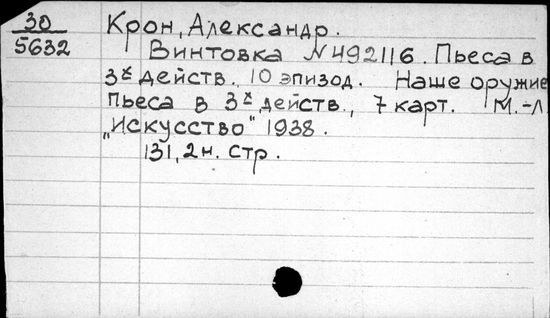 30
5632
Крон, Александр.
Винтовка N 492116. Пьеса в
3х действ. 10 эпизод. Наше оружие
Пьеса в 3х действ., 7 карт. М.-Л
„Искусство" 1938.
131, 2 н. стр.